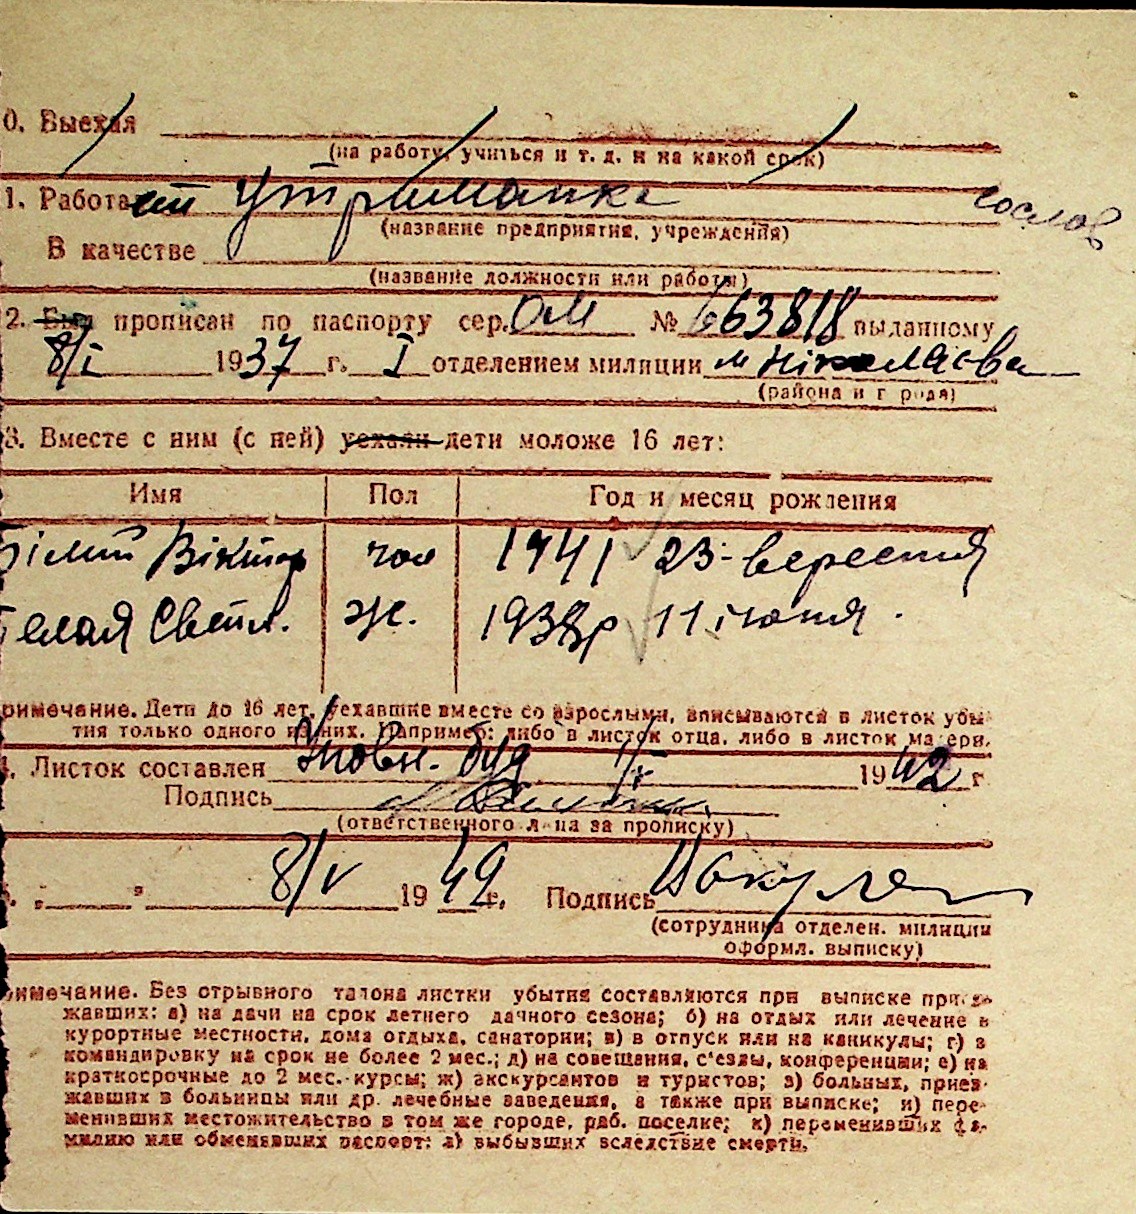 0. Выехал
(на работу, учиться и т. д. и на какой срок)
1. Работает Утриманка
(название предприятия, учреждения)
В качестве
(название должности или работы)
2. Был прописан по паспорту сер. ОМ № 663818 выданному
8/I 1937 г. I отделением милиции м Ніколаєва
(района и города)
3. Вместе с ним (с ней) уехали дети моложе 16 лет:
Имя Пол Год и месяц рождения
Білий Віктор чол 1941 23 вересня
Белая Светл. ж. 1938р 11 июня.
римечание. Дети до 16 лет, уехавшие вместе со взрослыми, вписываются в листок убы-
тия только одного из них. Например: либо в листок отца, либо в листок матери.
4. Листок составлен 1942 г
Подпись
(ответственного лица за прописку)
8/V 1942 г. Подпись
(сотрудника отделен. милиции
оформл. выписку)
римечание. Без отрывного талона листки убытия составляются при выписке приез-
жавших: а) на дачи на срок летнего дачного сезона; б) на отдых или лечение в
курортные местности, дома отдыха, санатории; в) в отпуск или на каникулы; г) в
командировку на срок не более 2 мес.; д) на совещания, с'езды, конференции; е) на
краткосрочные до 2 мес. курсы; ж) экскурсантов и туристов; з) больных, приез-
жавших в больницы или др. лечебные заведения, а также при выписке; и) пере-
менивших местожительство в том же городе, раб. поселке; к) переменивших фа-
милию или обменявших паспорт; л) выбывших вследствие смерти.